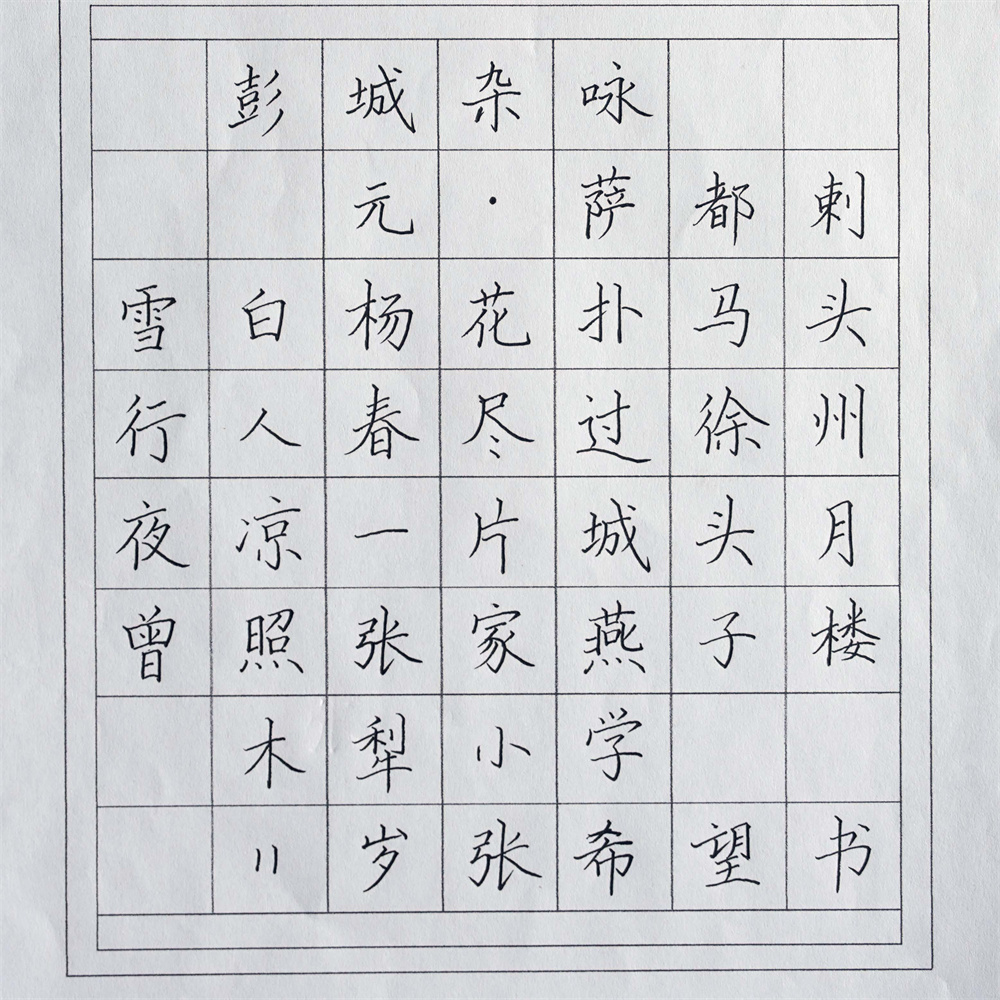 彭城杂咏
元·萨都剌
雪白杨花扑马头
行人春尽过徐州
夜凉一片城头月
曾照张家燕子楼
木犁小学
11岁张希望书